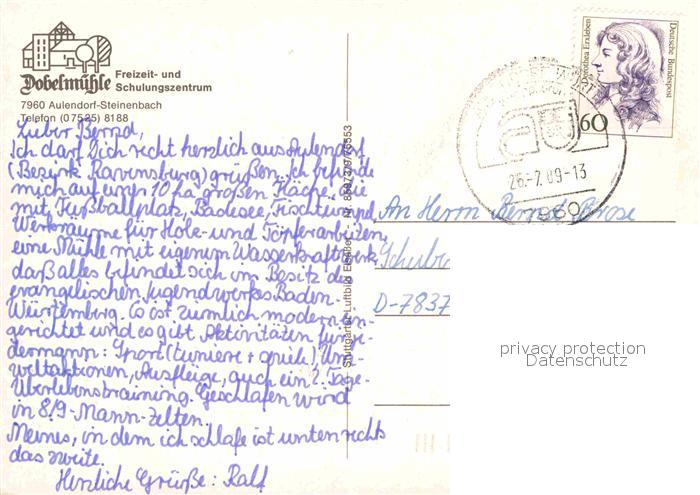 Dobelmühle
Freizeit- und
Schulungszentrum
7960 Aulendorf-Steinenbach
Telefon (07525) 8188
Lieber Bernd,
Ich darf Dich recht herzlich aus Aulendorf
(Bezirk Ravensburg) grüßen. Ich befinde
mich auf einer 10 ha großen Fläche, die
mit Fußballplatz, Badesee, Fischtümpel,
Werkräume für Holz- und Töpferarbeiten,
eine Mühle mit eigenem Wasserkraftwerk,
daß alles befindet sich im Besitz des
evangelischen Jugendwerkes Baden-
Württemberg. Es ist ziemlich modern ein-
gerichtet und es gibt Aktivitäten für je-
dermann: Sport (tuniere + spiele), Um-
weltaktionen, Ausflüge, auch ein 2-Tage-
Überlebenstraining. Geschlafen wird
in 8/9-Mann-Zelten.
Meines, in dem ich schlafe ist unten rechts
das zweite.
Herzliche Grüße: Ralf
Stuttgarter Luftbild
Dorothea Erxleben
Deutsche Bundespost
60
26.-7.89-13
7960
An Herrn Bernd Brose
Schub
D-7837
privacy protection
Datenschutz